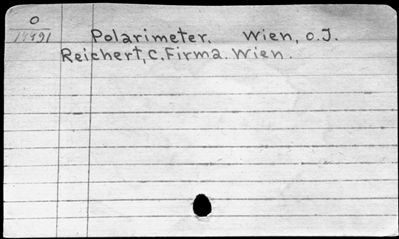 O
14491
Polarimeter. Wien, o.J.
Reichert, C. Firma. Wien.